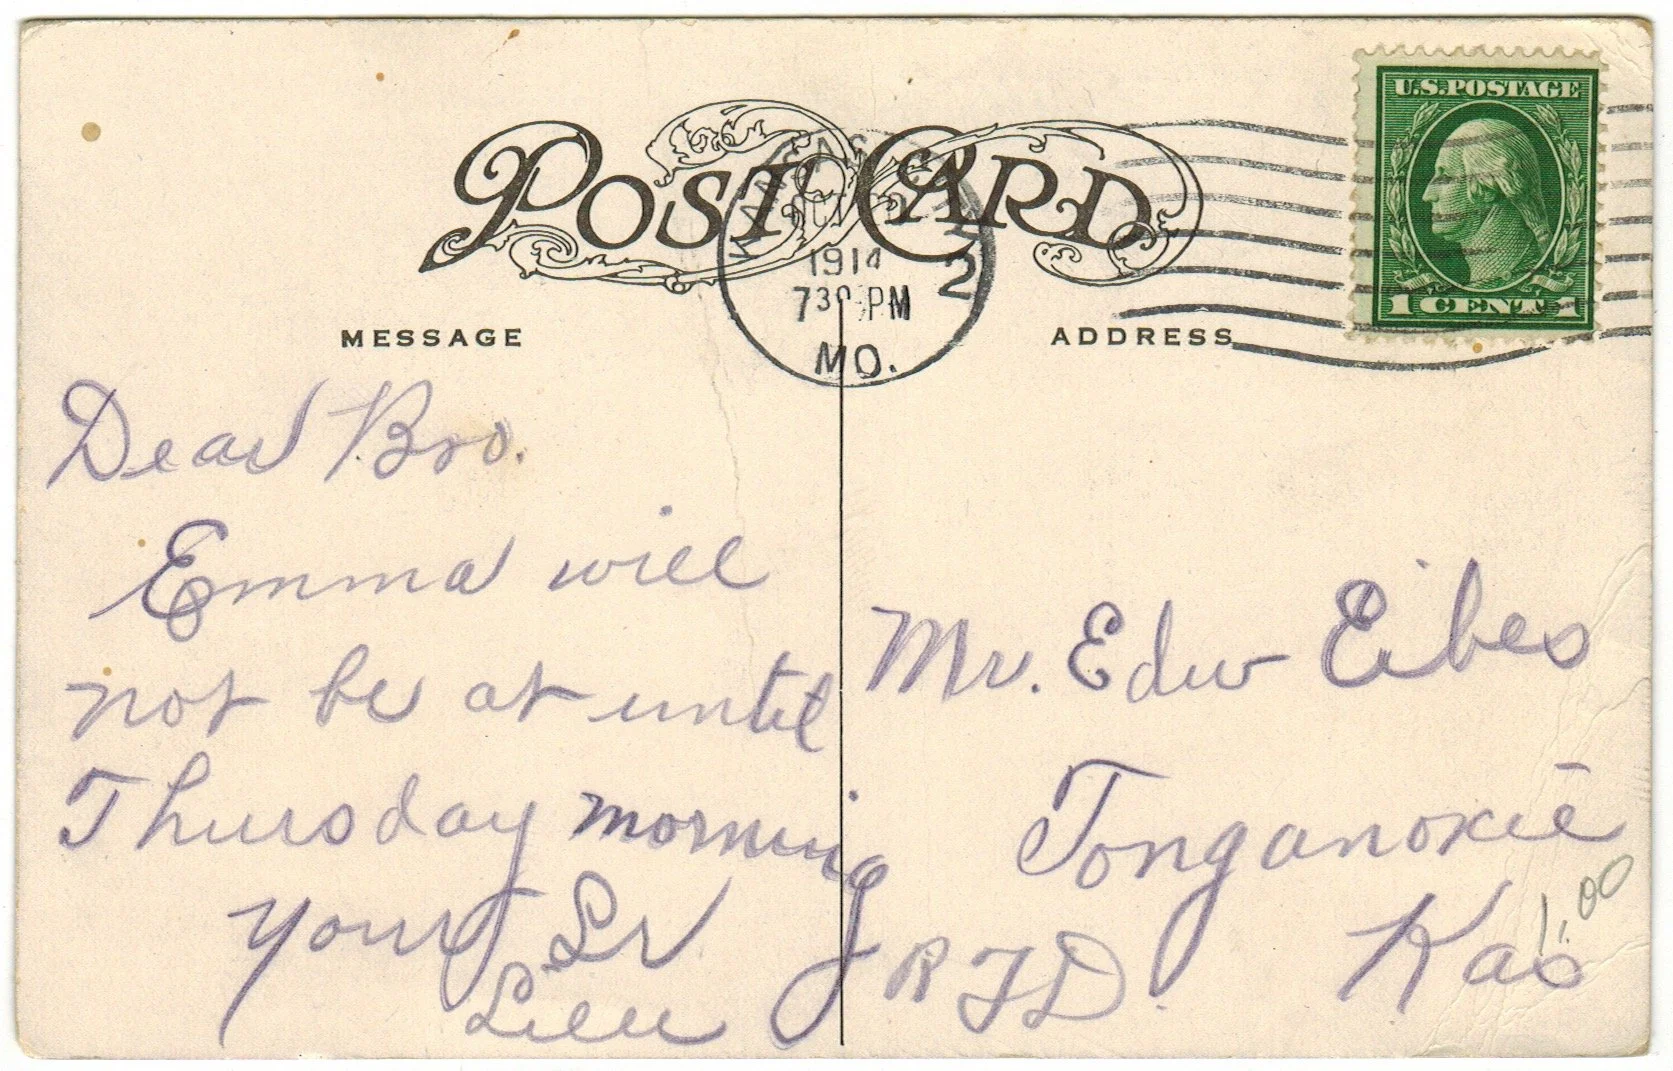 POST CARD
KANSAS CITY
1914
730 PM
2
MO.
U.S. POSTAGE
1 CENT 1
MESSAGE
ADDRESS
Dear Bro.
Emma will
not be at until
Thursday morning
Your Sr
Mr. Edw Eibes
Tonganoxie
Kas
R F D.
1.00